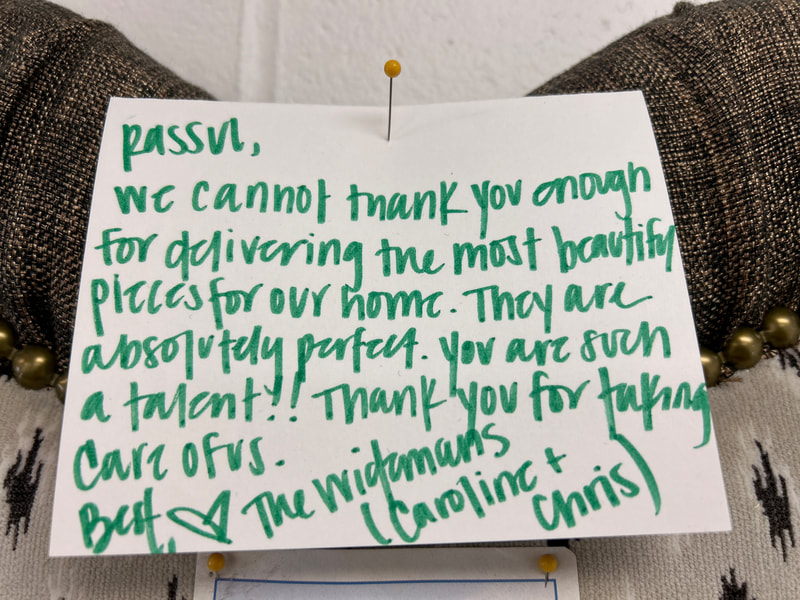 Rassul,
We cannot thank you enough
for delivering the most beautiful
pieces for our home. They are
absolutely perfect. You are such
a talent!! Thank you for taking
care of us.
Best, ♡ The Widemans
(Caroline +
Chris)